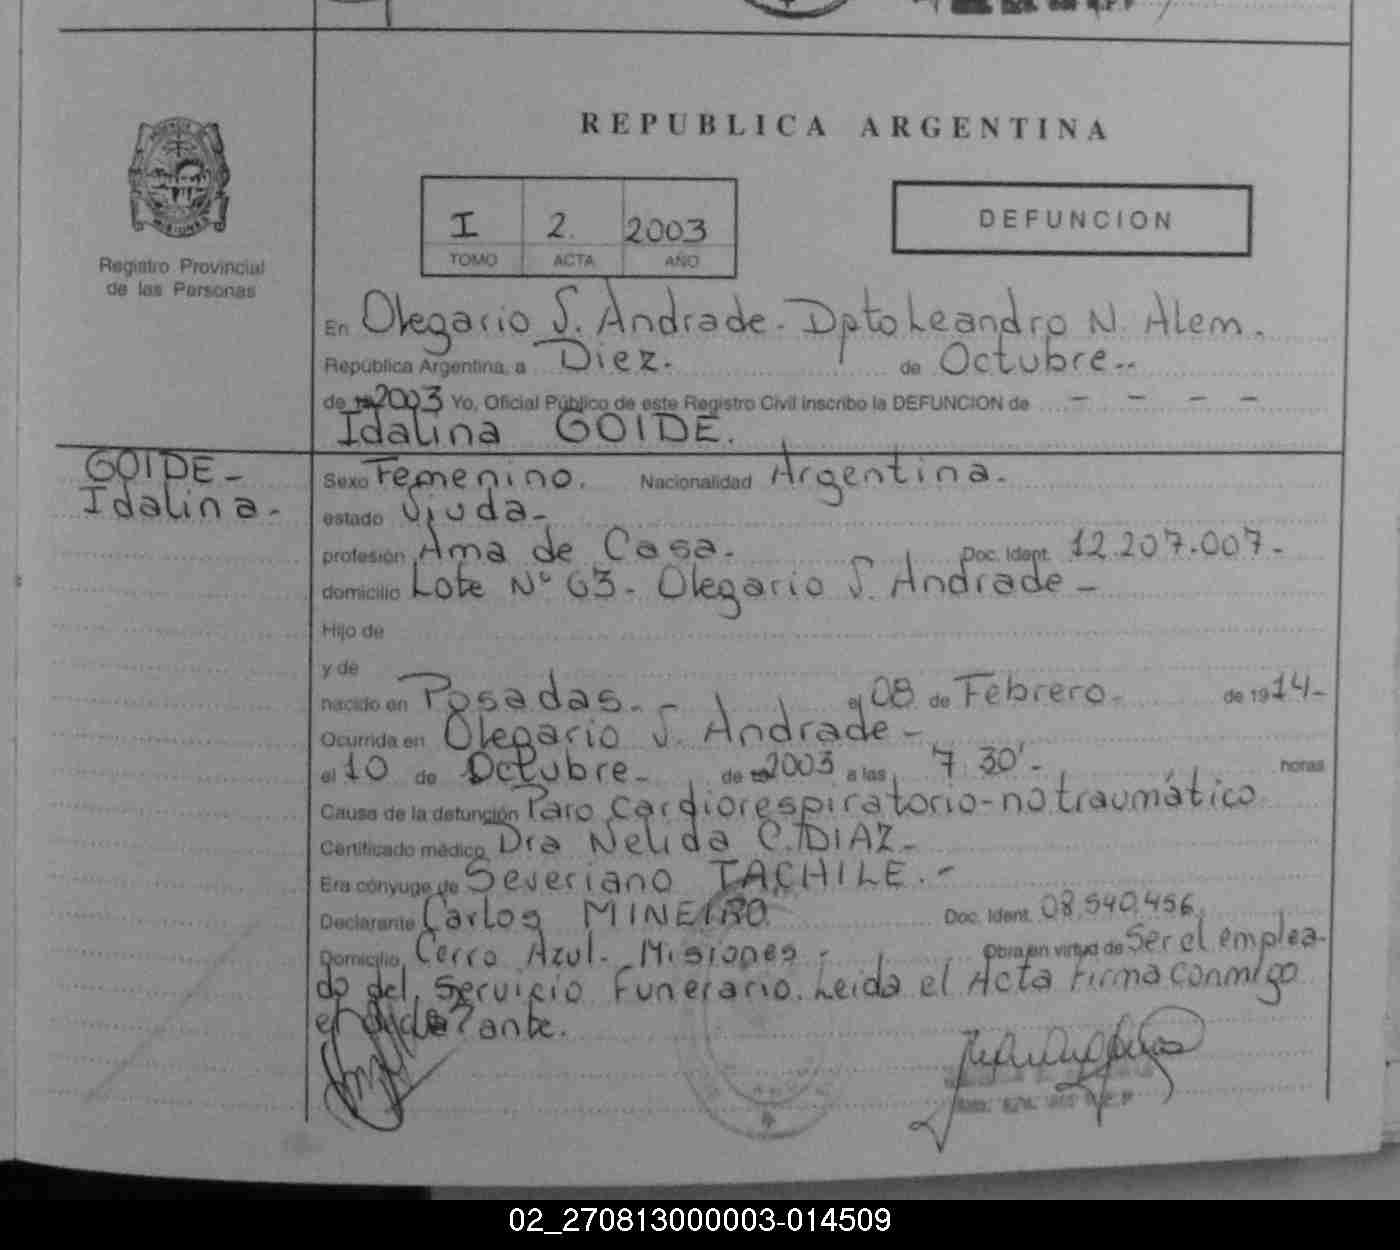 REPUBLICA ARGENTINA
I 2. 2003
TOMO ACTA AÑO
DEFUNCION
Registro Provincial
de las Personas
En Olegario S. Andrade. Dpto Leandro N. Alem.
República Argentina, a Diez. de Octubre..
de 2003 Yo, Oficial Público de este Registro Civil inscribo la DEFUNCION de - - - -
Idalina GOIDE.
GOIDE -
Idalina -
Sexo Femenino. Nacionalidad Argentina.
estado Viuda -
profesión Ama de Casa. Doc. Ident. 12.207.007-
domicilio Lote N° 63 - Olegario S. Andrade -
Hijo de
y de
nacido en Posadas. - el 08 de Febrero - de 1914-
Ocurrida en Olegario S. Andrade -
el 10 de Octubre - de 2003 a las 7.30'- horas
Causa de la defunción Paro cardiorespiratorio - no traumático
Certificado médico Dra Nelida C. DIAZ -
Era cónyuge de Severiano TACHILE. -
Declarante Carlos MINEIRO Doc. Ident. 08.540.456
Domicilio Cerro Azul. Misiones - Obra en virtud de Ser el emplea-
do del Servicio Funerario. Leida el Acta Firma conmigo
el declarante.
02_270813000003-014509